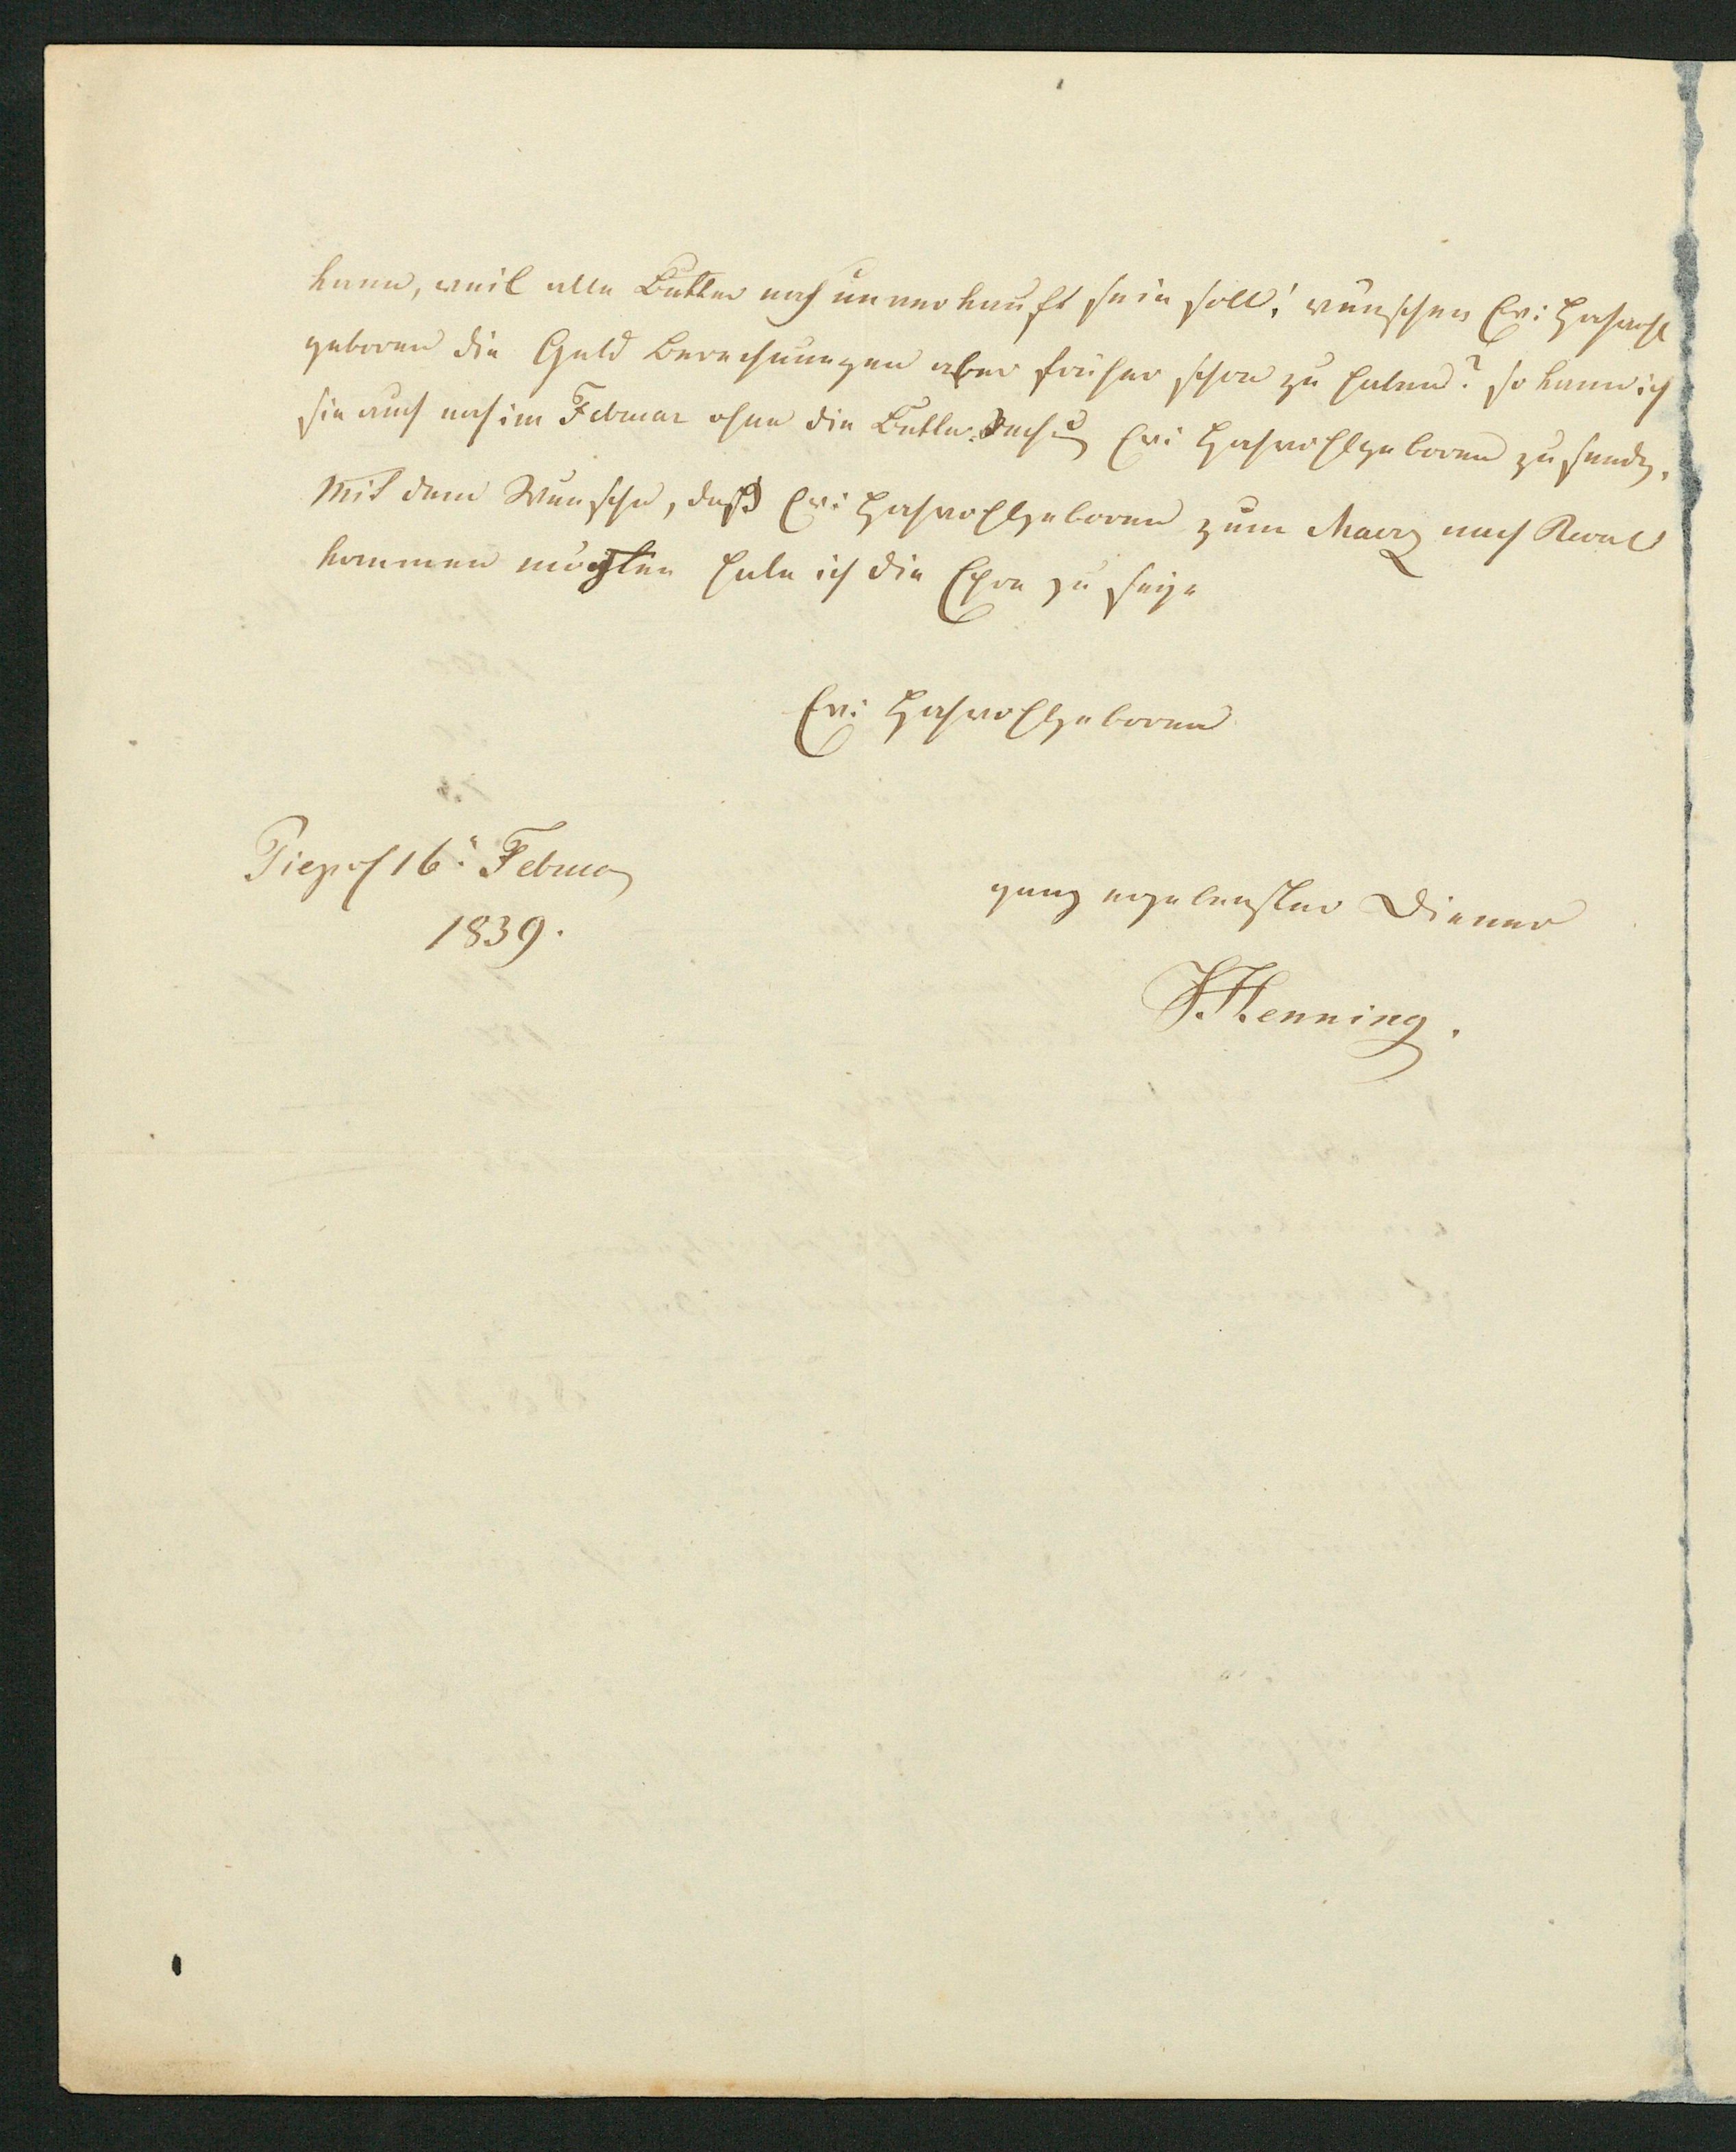 kann, weil alle Butter noch unverkauft sein soll! wünschen Ew: Hochwohl
geboren die Geld Berechnungen aber früher schon zu haben? so kann ich
sie auch noch im Februar ohne die Butter Rechng Ew: Hochwohlgeboren zusenden.
Mit dem Wunsche, daß Ew: Hochwohlgeboren zum Maerz nach Reval
kommen mögten habe ich die Ehre zu sein
Ew: Hochwohlgeboren
ganz ergebenster Diener
Piep 16. Februar
1839.
Henning.